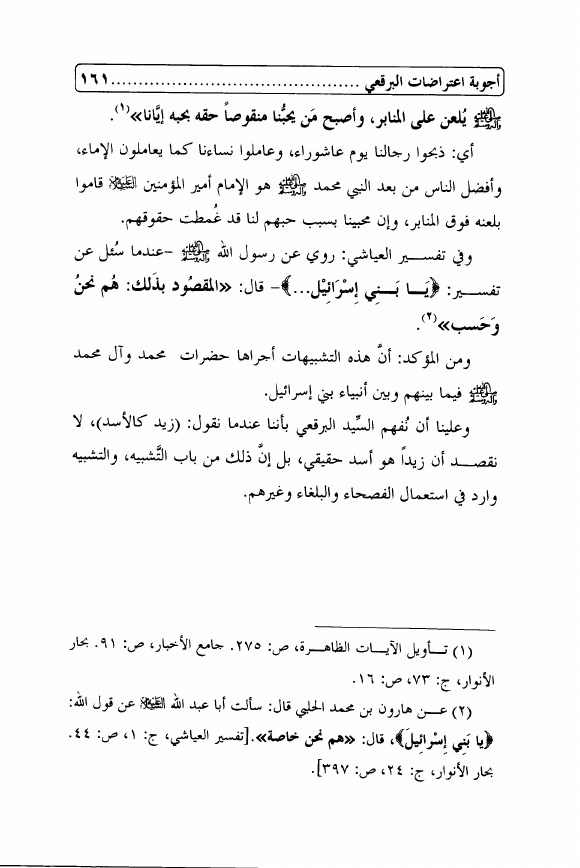 أجوبة اعتراضات البرقعي ............................................ ١٦١
ﷺ يُلعن على المنابر، وأصبح مَن يحبُّنا منقوصاً حقه بحبه إيَّانا»(١).
أي: ذبحوا رجالنا يوم عاشوراء، وعاملوا نساءنا كما يعاملون الإماء،
وأفضل الناس من بعد النبي محمد ﷺ هو الإمام أمير المؤمنين عليه السلام قاموا
بلعنه فوق المنابر، وإن محبينا بسبب حبهم لنا قد غُمطت حقوقهم.
وفي تفسير العياشي: روي عن رسول الله ﷺ -عندما سُئل عن
تفسير: ﴿يَا بَنِي إِسْرَائِيْل...﴾- قال: «المقصُود بذَلك: هُم نحنُ
وَحَسب»(٢).
ومن المؤكد: أنَّ هذه التشبيهات أجراها حضرات محمد وآل محمد
ﷺ فيما بينهم وبين أنبياء بني إسرائيل.
وعلينا أن نُفهم السيِّد البرقعي بأننا عندما نقول: (زيد كالأسد)، لا
نقصد أن زيداً هو أسد حقيقي، بل إنَّ ذلك من باب التَّشبيه، والتشبيه
وارد في استعمال الفصحاء والبلغاء وغيرهم.
(١) تأويل الآيات الظاهرة، ص: ٢٧٥. جامع الأخبار، ص: ٩١. بحار
الأنوار، ج: ٧٣، ص: ١٦.
(٢) عن هارون بن محمد الحلبي قال: سألت أبا عبد الله عليه السلام عن قول الله:
﴿يا بَنِي إِسْرائِيلَ﴾، قال: «هم نحن خاصة».[تفسير العياشي، ج: ١، ص: ٤٤.
بحار الأنوار، ج: ٢٤، ص: ٣٩٧].